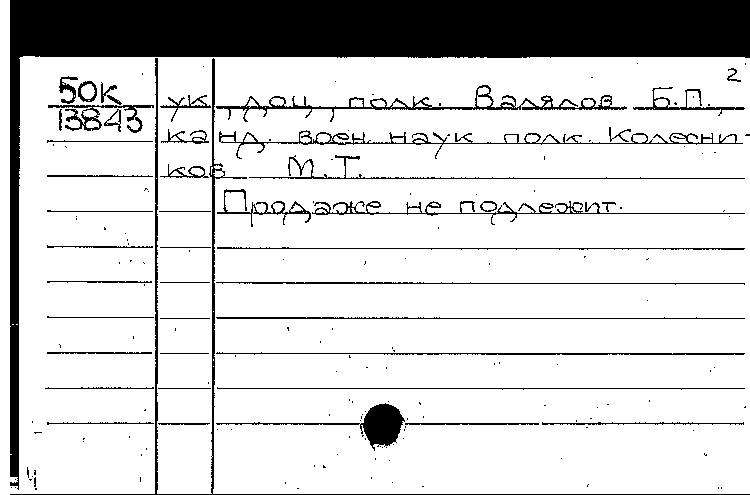 2
50К
13843
ук, доц, полк. Валялов Б.П.,
канд. воен. наук полк. Колесни-
ков М.Т.
Продаже не подлежит.